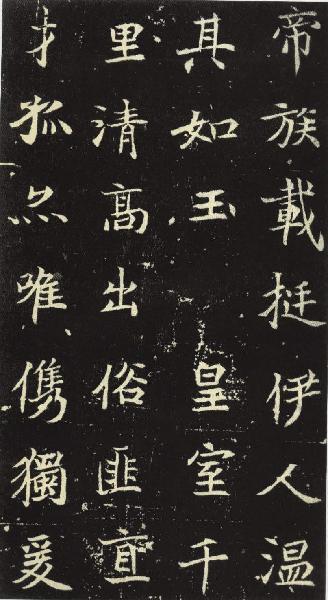 帝族載挺伊人温
其如玉 皇室千
里清髙出俗匪直
才孤亦唯儁獨爰